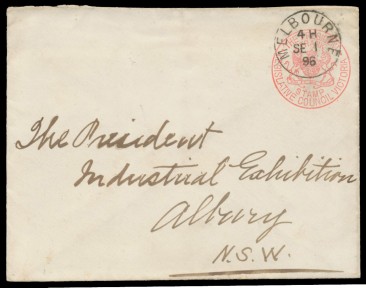 MELBOURNE
4 H
SE 1
96
STAMP
LEGISLATIVE COUNCIL VICTORIA
The President
Industrial Exhibition
Albury
N.S.W.